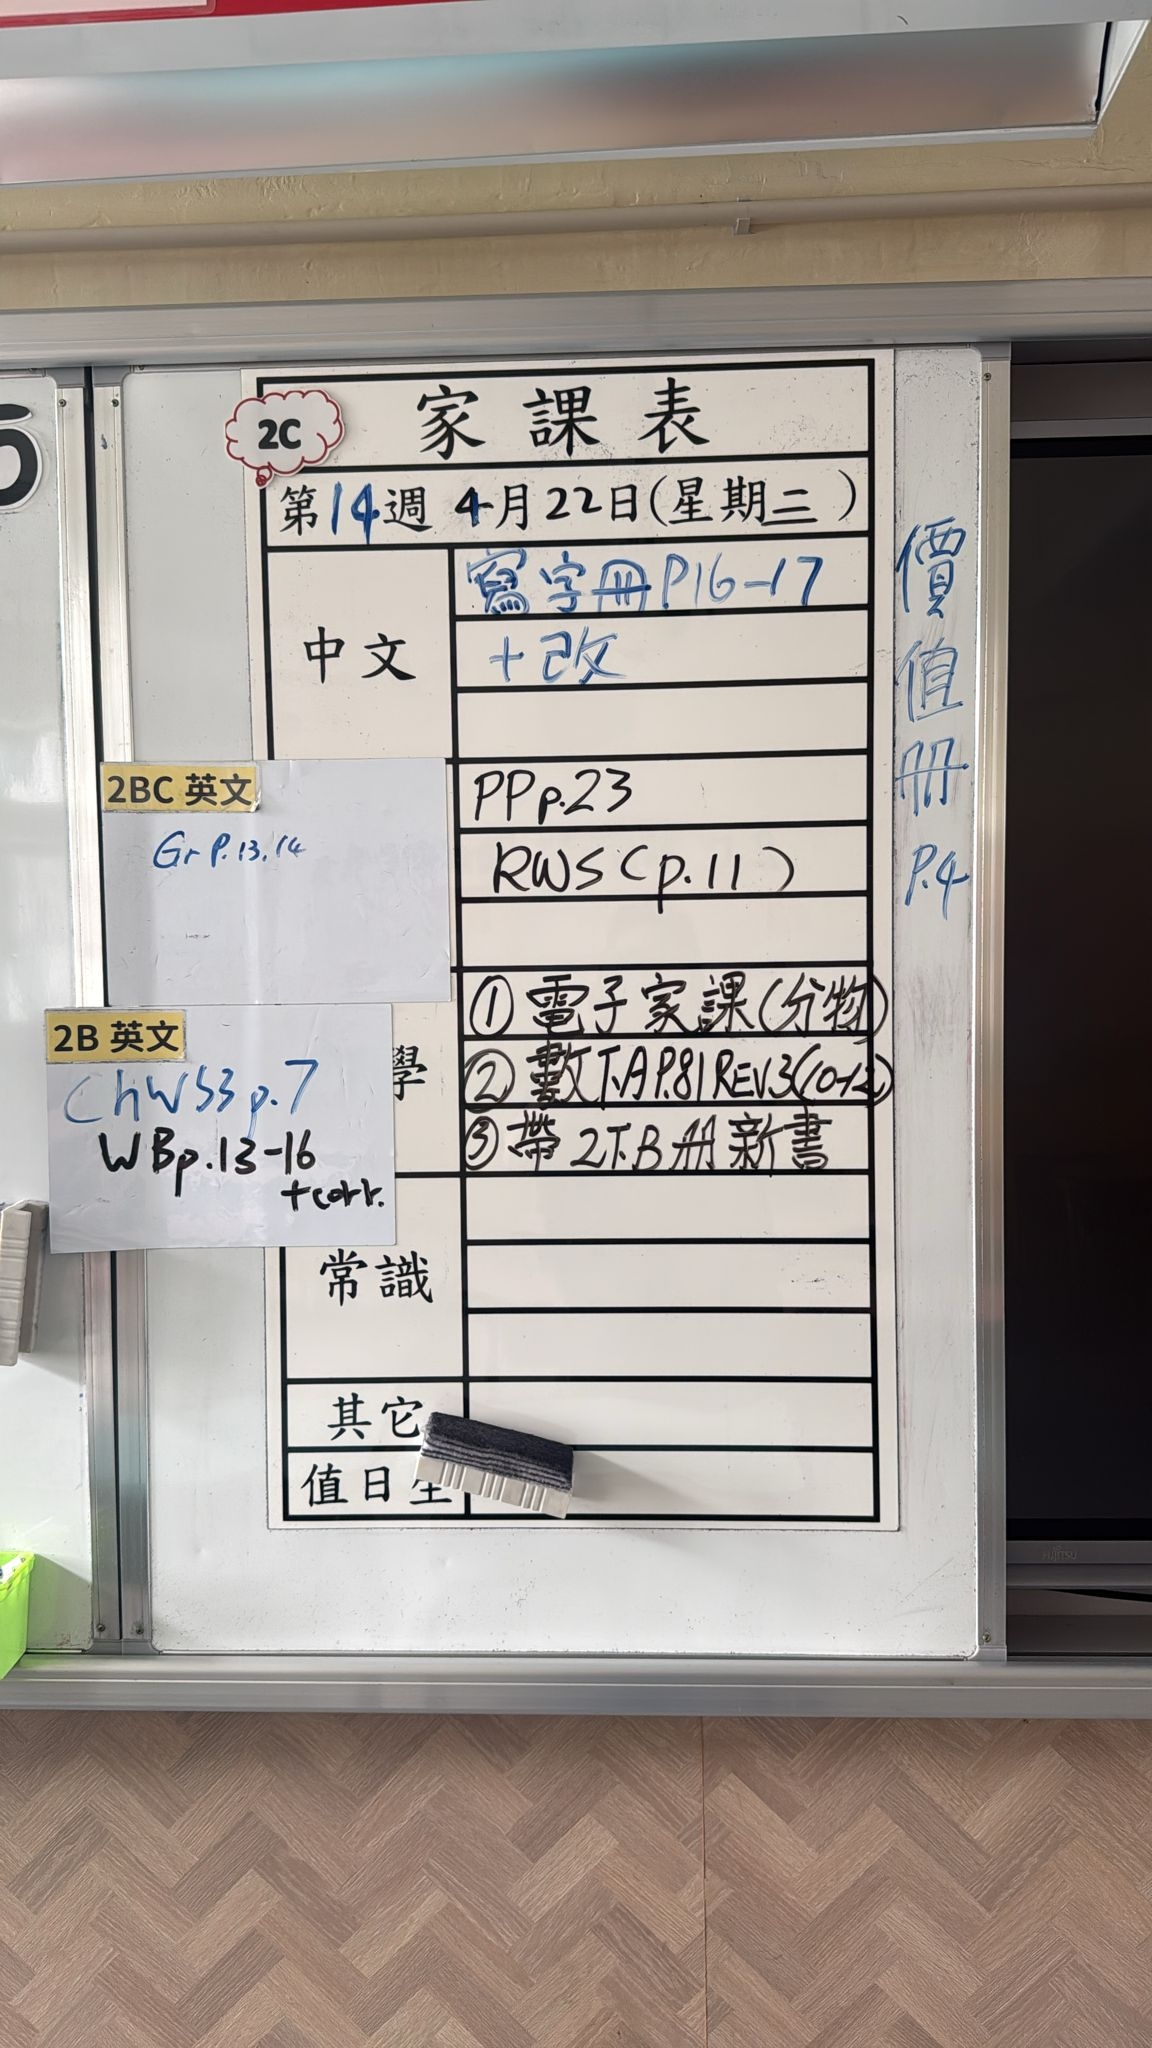 2C
家課表
第14週 4月22日(星期三)
中文
寫字冊P16-17
+改
2BC 英文
Gr P.13,14
PP p.23
RWS (p.11)
2B 英文
ChWS3 p.7
WB p.13-16
+corr.
學
①電子家課(分物)
②數T.A P.81 REV3(10-12)
③帶2T.B冊新書
常識
其它
值日生
價值冊P.4
FUJITSU